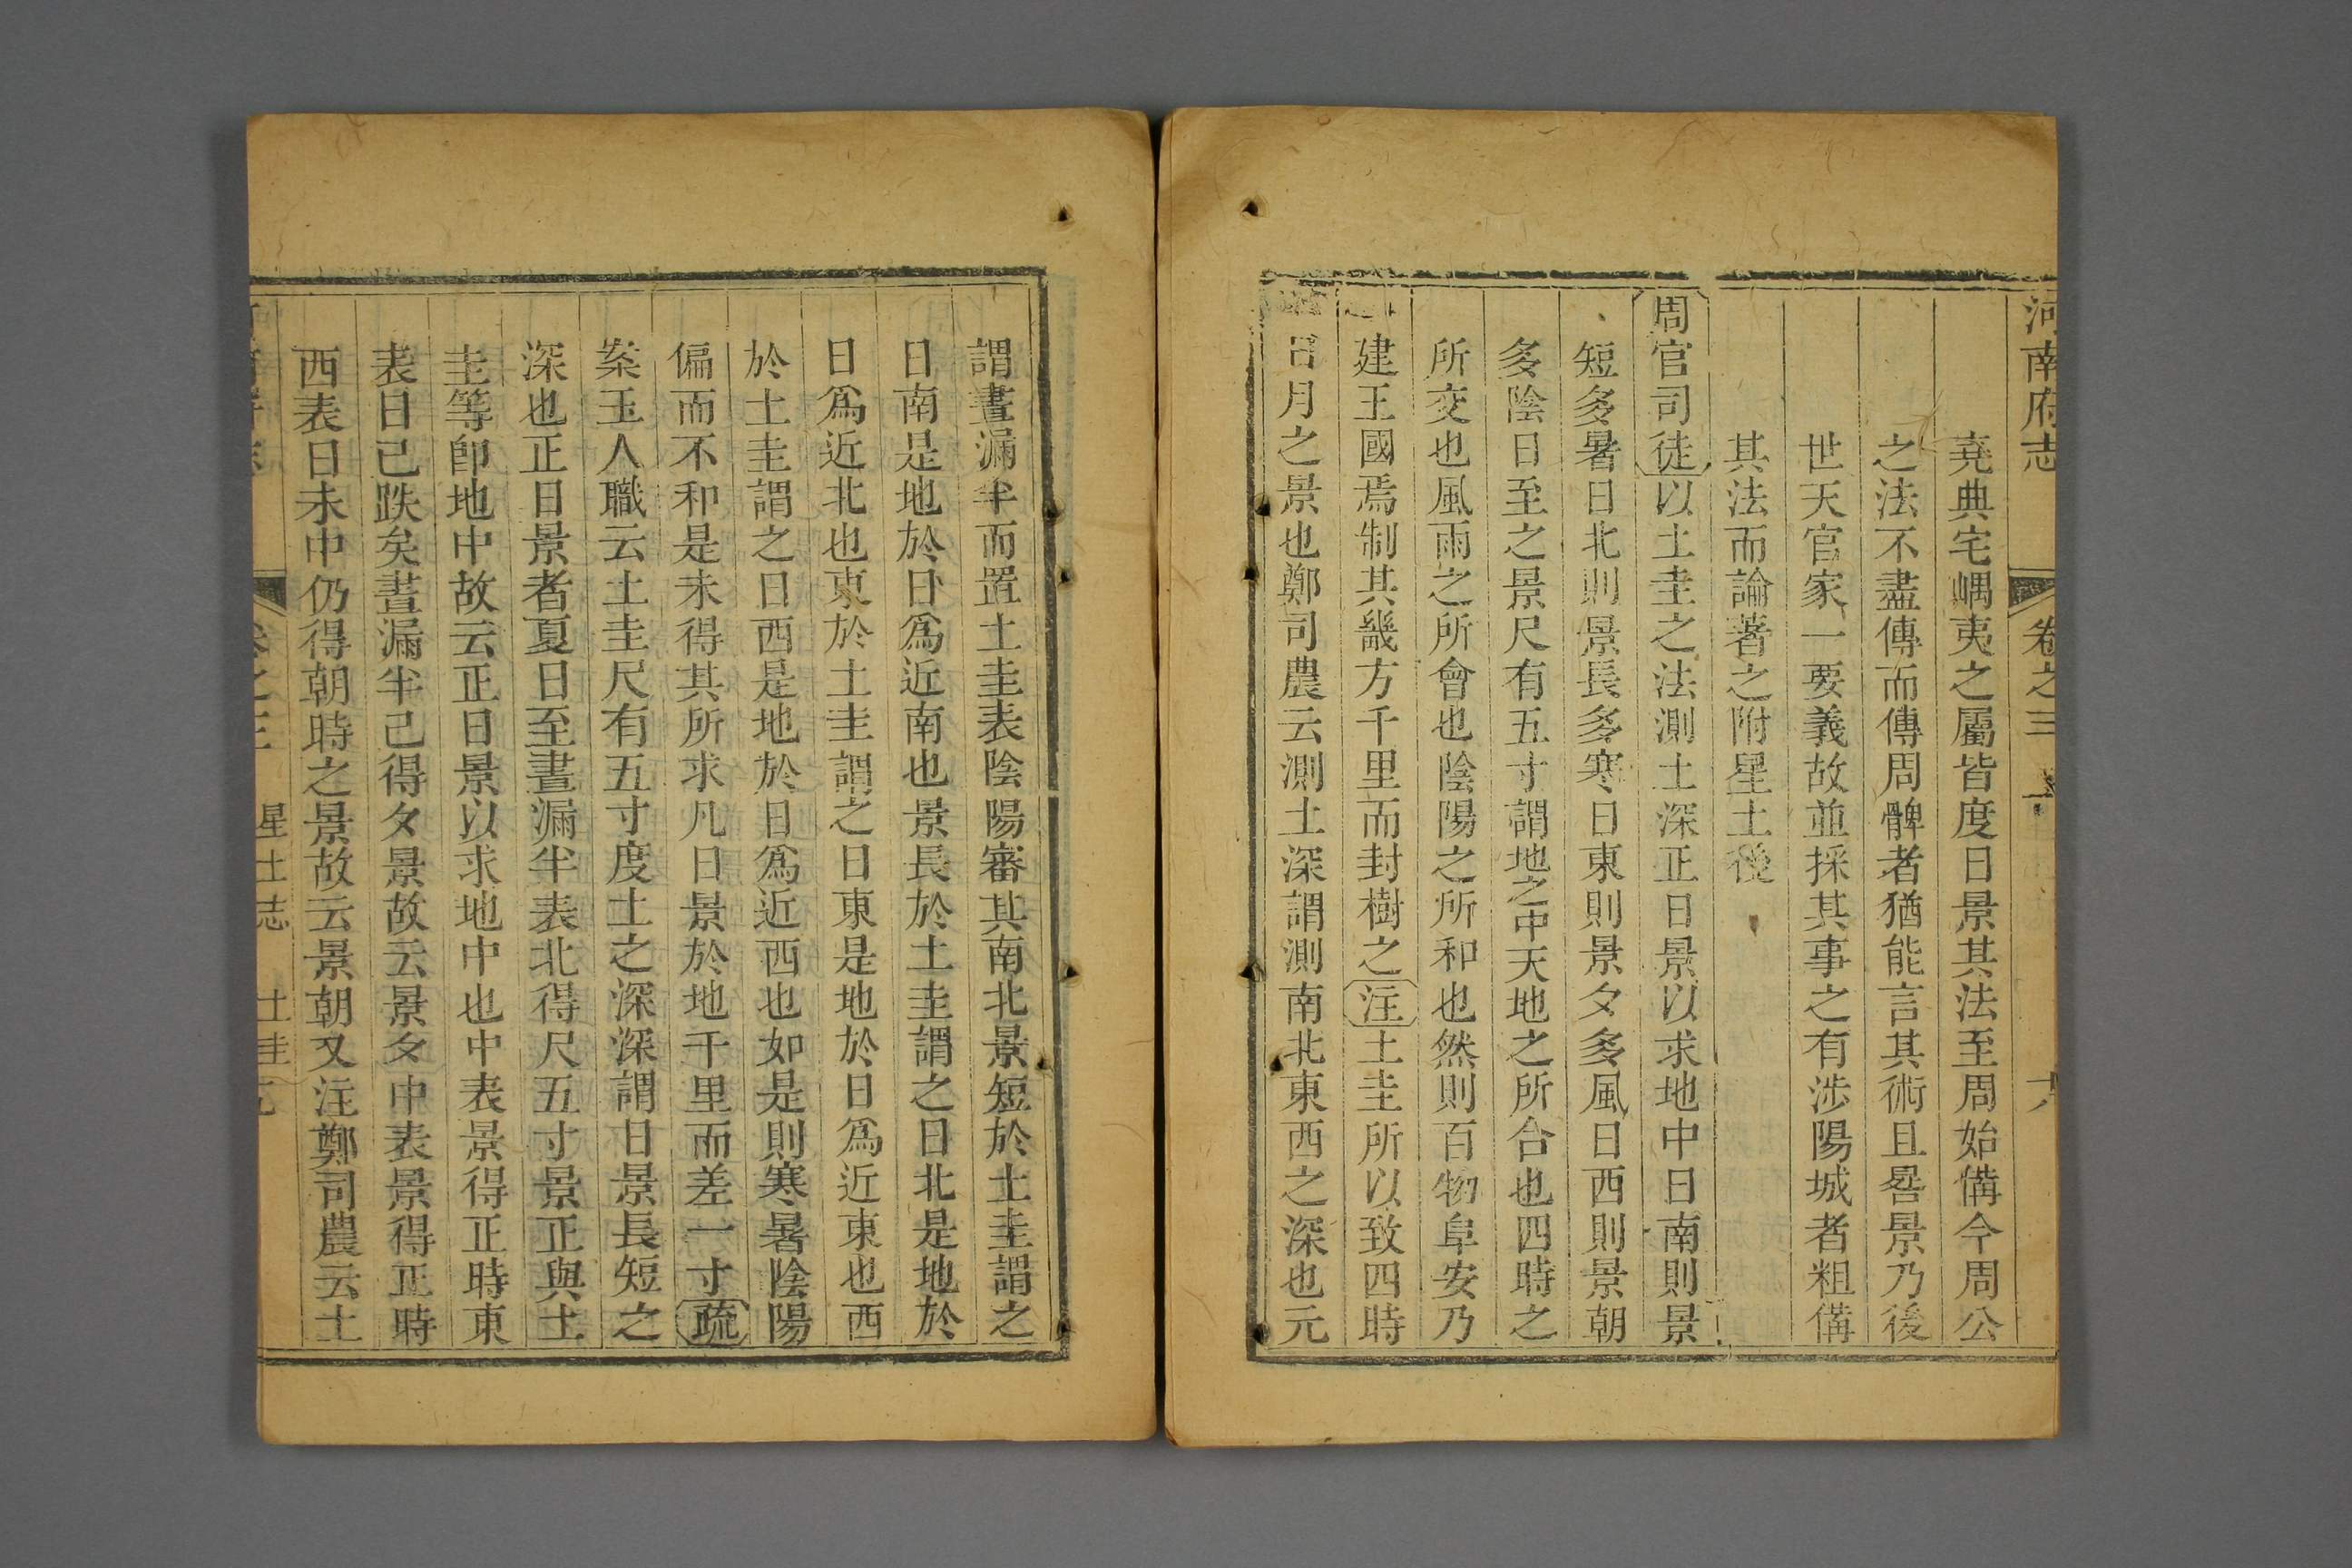 河南府志　卷之三　六
堯典宅嵎夷之屬皆度日景其法至周始備今周公
之法不盡傳而傳周髀者猶能言其術且晷景乃後
世天官家一要義故並採其事之有涉陽城者粗備
其法而論著之附星土後
周官司徒以土圭之法測土深正日景以求地中日南則景
短多暑日北則景長多寒日東則景夕多風日西則景朝
多陰日至之景尺有五寸謂地之中天地之所合也四時之
所交也風雨之所會也陰陽之所和也然則百物阜安乃
建王國焉制其畿方千里而封樹之注土圭所以致四時
日月之景也鄭司農云測土深謂測南北東西之深也元
謂晝漏半而置土圭表陰陽審其南北景短於土圭謂之
日南是地於日爲近南也景長於土圭謂之日北是地於
日爲近北也東於土圭謂之日東是地於日爲近東也西
於土圭謂之日西是地於日爲近西也如是則寒暑陰陽
偏而不和是未得其所求凡日景於地千里而差一寸疏
案玉人職云土圭尺有五寸度土之深深謂日景長短之
深也正日景者夏日至晝漏半表北得尺五寸景正與土
圭等卽地中故云正日景以求地中也中表景得正時東
表日已跌矣晝漏半已得夕景故云景夕中表景得正時
西表日未中仍得朝時之景故云景朝又注鄭司農云土
卷之三　星土志　土圭